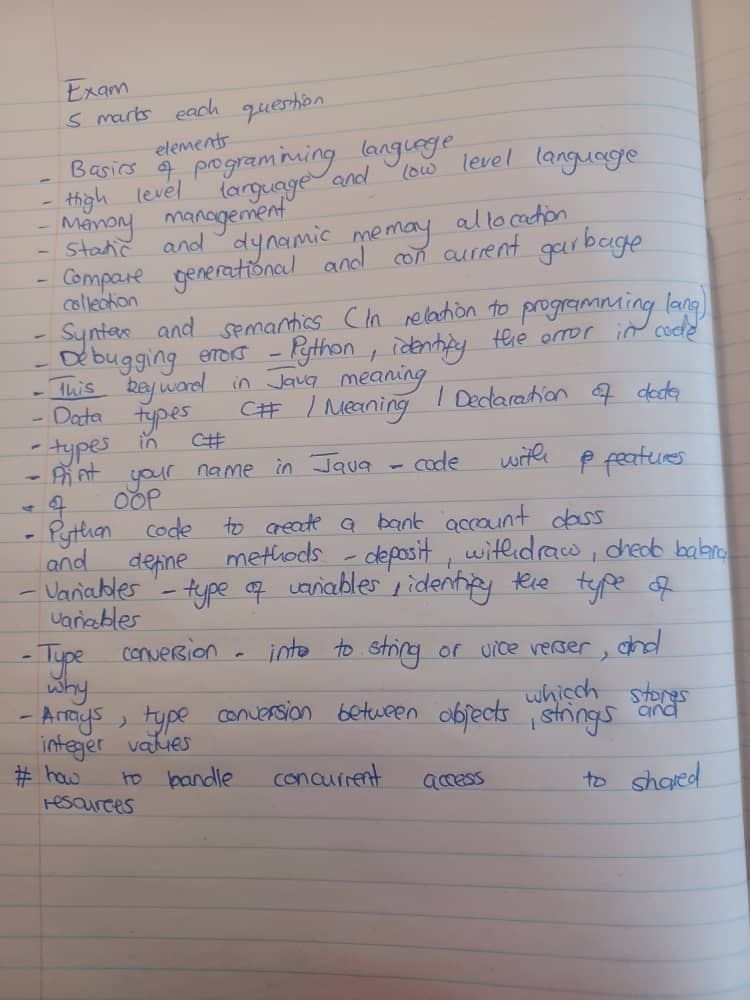 Exam
5 marks each question
elements
- Basics of programming language
- High level language and low level language
- Memory management
- Static and dynamic memory allocation
- Compare generational and concurrent garbage
collection
- Syntax and semantics (In relation to programming lang)
- Debugging errors - Python, identify the error in code
- This keyword in Java meaning
- Data types C# / Meaning / Declaration of data
- types in C#
- Print your name in Java - code with features
- of OOP
- Python code to create a bank account class
and define methods - deposit, withdraw, check balanc
- Variables - type of variables, identify the type of
variables
- Type conversion - into to string or vice verser, and
why
whicch stores
- Arrays, type conversion between objects, strings and
integer values
# how to handle concurrent access to shared
resources